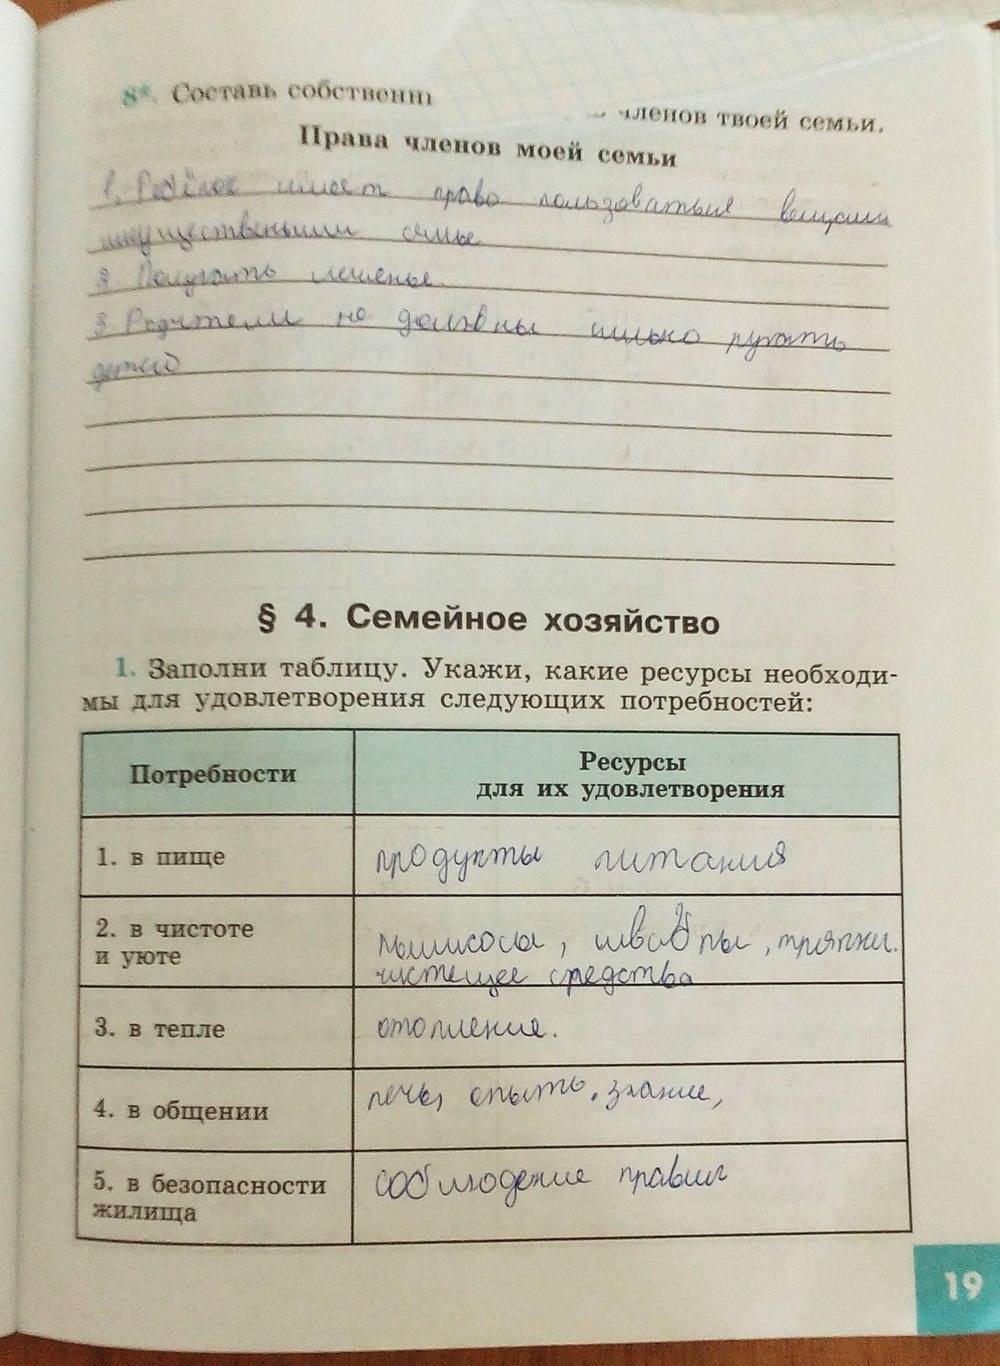 8*. Составь собственны
членов твоей семьи.
Права членов моей семьи
1. Ребёнок имеет право пользоваться вещами
имущественыыми семье
2. Получать леченье.
3. Родители не должны сильно ругать
детей
§ 4. Семейное хозяйство
1. Заполни таблицу. Укажи, какие ресурсы необходи-
мы для удовлетворения следующих потребностей:
Потребности
Ресурсы
для их удовлетворения
1. в пище
продукты питания
2. в чистоте
и уюте
пылисосы, швабры, тряпки.
чистещее средства
3. в тепле
отопление.
4. в общении
речь, опыть. знание,
5. в безопасности
жилища
соблюдение правил
19